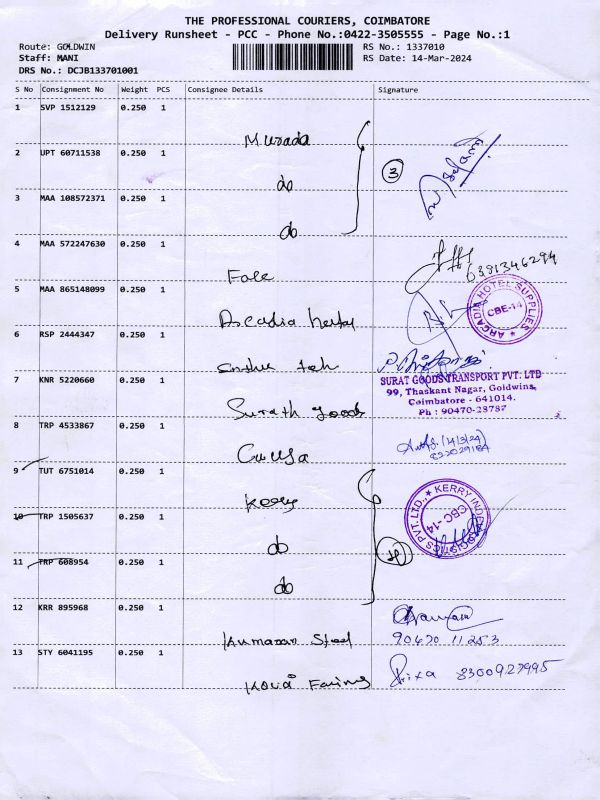 THE PROFESSIONAL COURIERS, COIMBATORE
Delivery Runsheet - PCC - Phone No.:0422-3505555 - Page No.:1
Route: GOLDWIN RS No.: 1337010
Staff: MANI RS Date: 14-Mar-2024
DRS No.: DCJB133701001
S No Consignment No Weight PCS Consignee Details Signature
1 SVP 1512129 0.250 1
Murada
2 UPT 60711538 0.250 1
do
3
3 MAA 108572371 0.250 1
do
4 MAA 572247630 0.250 1
6381346294
5 MAA 865148099 0.250 1
Arcadia hotel
ARCADIA HOTEL SUPPLIES
CBE-14
6 RSP 2444347 0.250 1
7 KNR 5220660 0.250 1
Surath goods
SURAT GOODS TRANSPORT PVT. LTD
99, Thaskant Nagar, Goldwins,
Coimbatore - 641014.
Ph : 90470-23787
8 TRP 4533867 0.250 1
(14/3/24)
9 TUT 6751014 0.250 1
Kerry
KERRY INDEV LOGISTICS PVT. LTD.,
CBC-14
10 TRP 1505637 0.250 1
do
11 TRP 608954 0.250 1
do
12 KRR 895968 0.250 1
Kumaran Steel
90470 11253
13 STY 6041195 0.250 1
Priya 8300927995